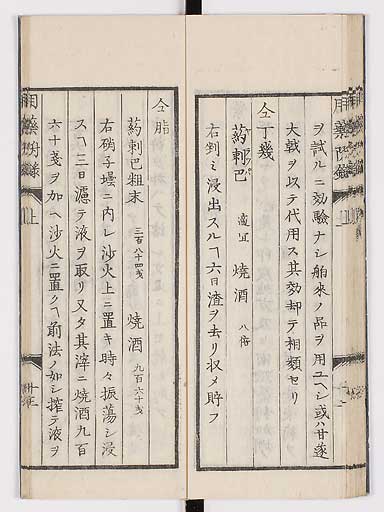 ヲ試ルニ効驗ナシ舶來ノ品ヲ用ユヘシ或ハ甘遂
大戟ヲ以テ代用ス其効却テ相類セリ
仝丁幾
葯剌巴 適宜 燒酒 八倍
右剉ミ浸出スルヿ六日渣ヲ去リ収メ貯フ
仝脂
葯剌巴粗末 三百八十四戔 燒酒 九百六十戔
右硝子壜ニ内レ沙火上ニ置キ時々振蕩シ浸
スヿ三日濾テ液ヲ取リ又タ其滓ニ燒酒九百
六十戔ヲ加ヘ沙火ニ置クヿ前法ノ如シ搾テ液ヲ
上